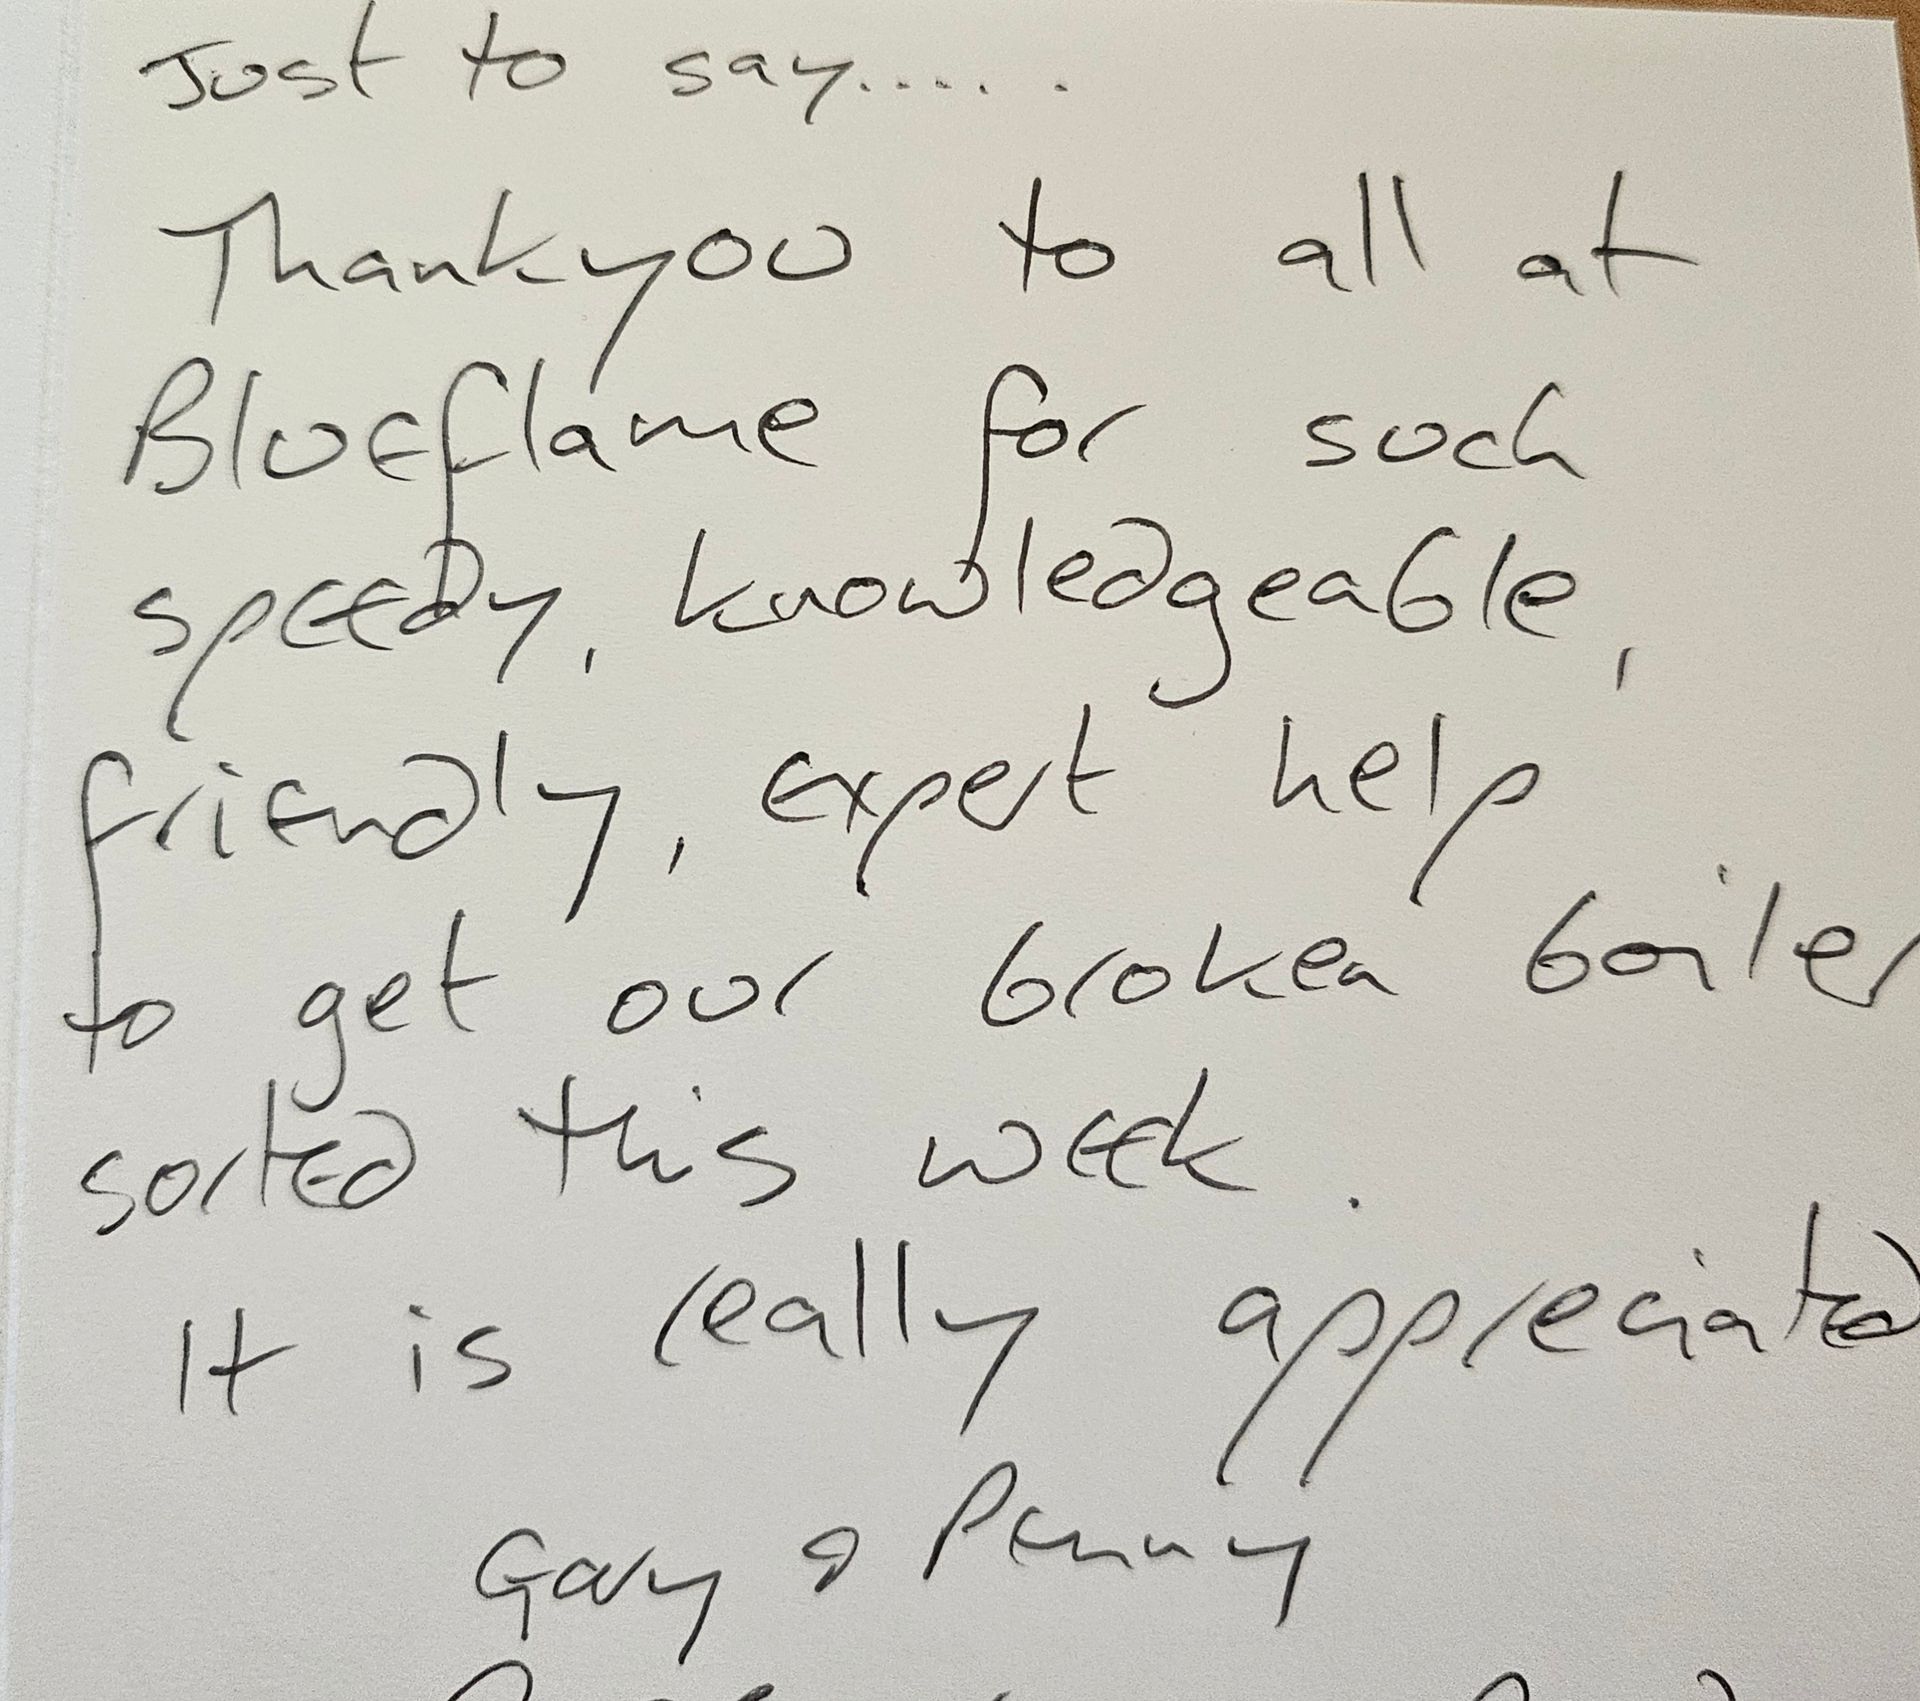 Just to say......
Thankyou to all at
Blueflame for such
speedy, knowledgeable,
friendly, expert help
to get our broken boiler
sorted this week.
It is really appreciated
Gary & Penny